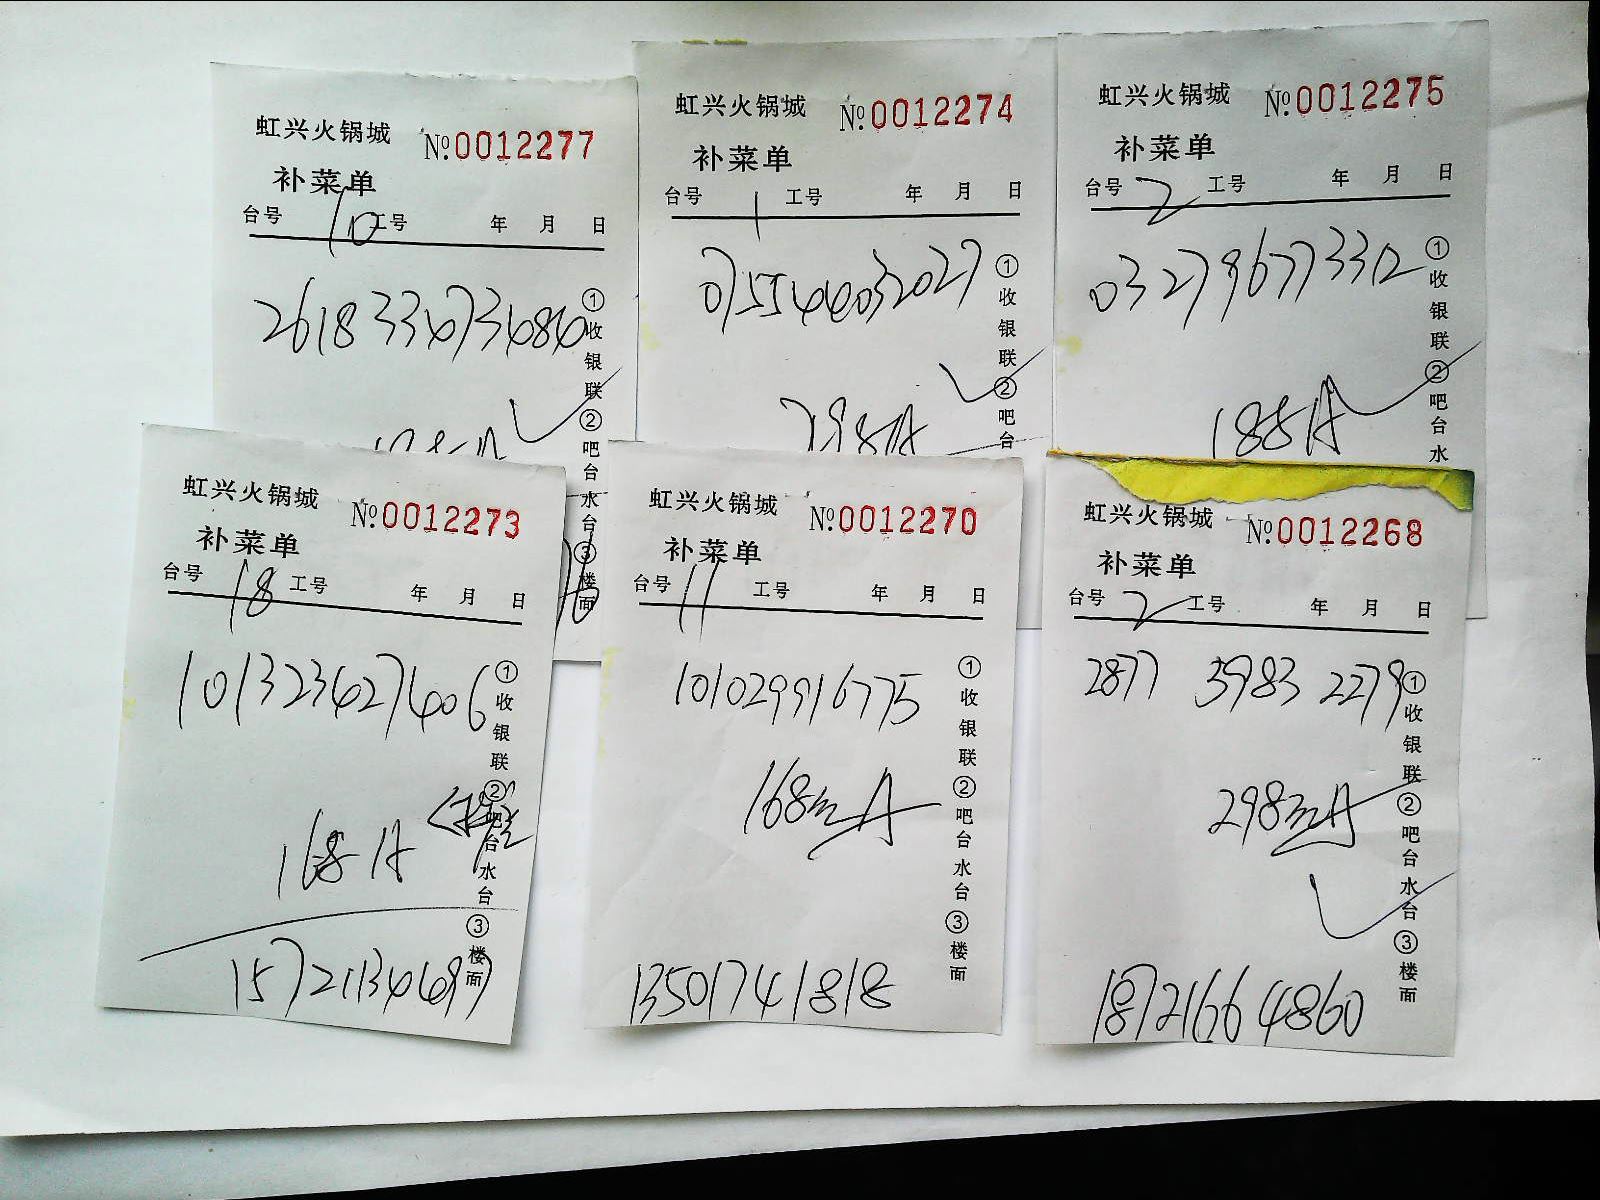 虹兴火锅城 №0012277
补菜单
台号 10 工号 年 月 日
①收银联 ②吧台水台 ③楼面
虹兴火锅城 №0012274
补菜单
台号 1 工号 年 月 日
075544032027
298A
①收银联 ②吧台
虹兴火锅城 №0012275
补菜单
台号 2 工号 年 月 日
032796773312
188A
①收银联 ②吧台水
虹兴火锅城 №0012273
补菜单
台号 18 工号 年 月 日
1013234274406
168A
①收银联 ②吧台水台 ③楼面
虹兴火锅城 №0012270
补菜单
台号 11 工号 年 月 日
101029916775
168元A
13501741818
①收银联 ②吧台水台 ③楼面
虹兴火锅城 №0012268
补菜单
台号 2 工号 年 月 日
2877 3983 2279
298元A
18721664860
①收银联 ②吧台水台 ③楼面